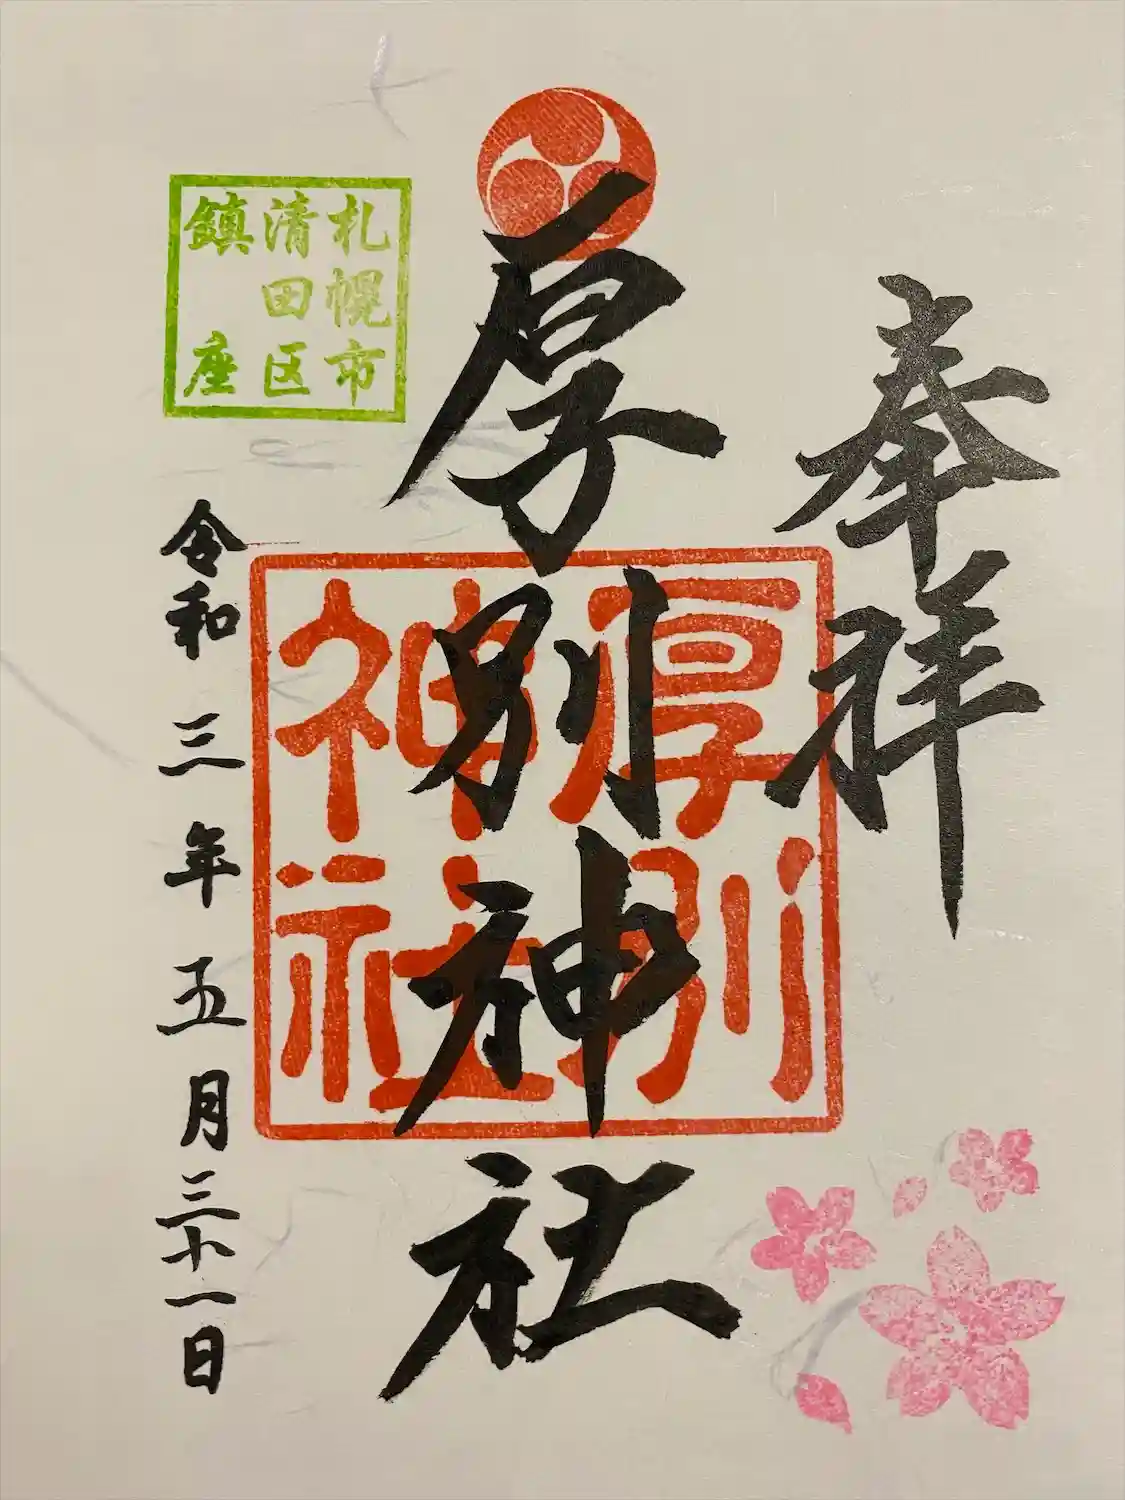 奉拝
厚別神社
厚別
神社
札幌市
清田区
鎮座
令和三年五月三十一日